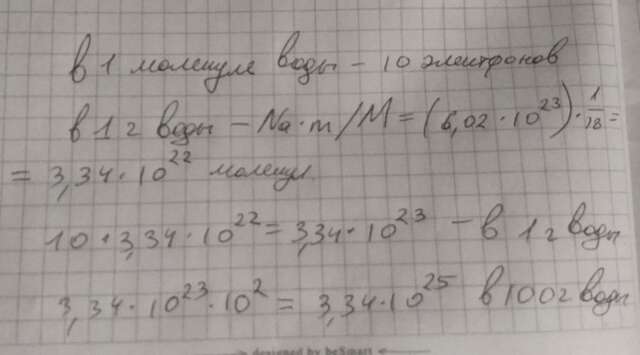 в 1 молекуле воды – 10 электронов
в 1 г воды – Na·m/M = (6,02·10²³)·1/18 =
= 3,34·10²² молекул
10·3,34·10²² = 3,34·10²³ – в 1 г воды
3,34·10²³·10² = 3,34·10²⁵ в 100 г воды
designed by beSmart